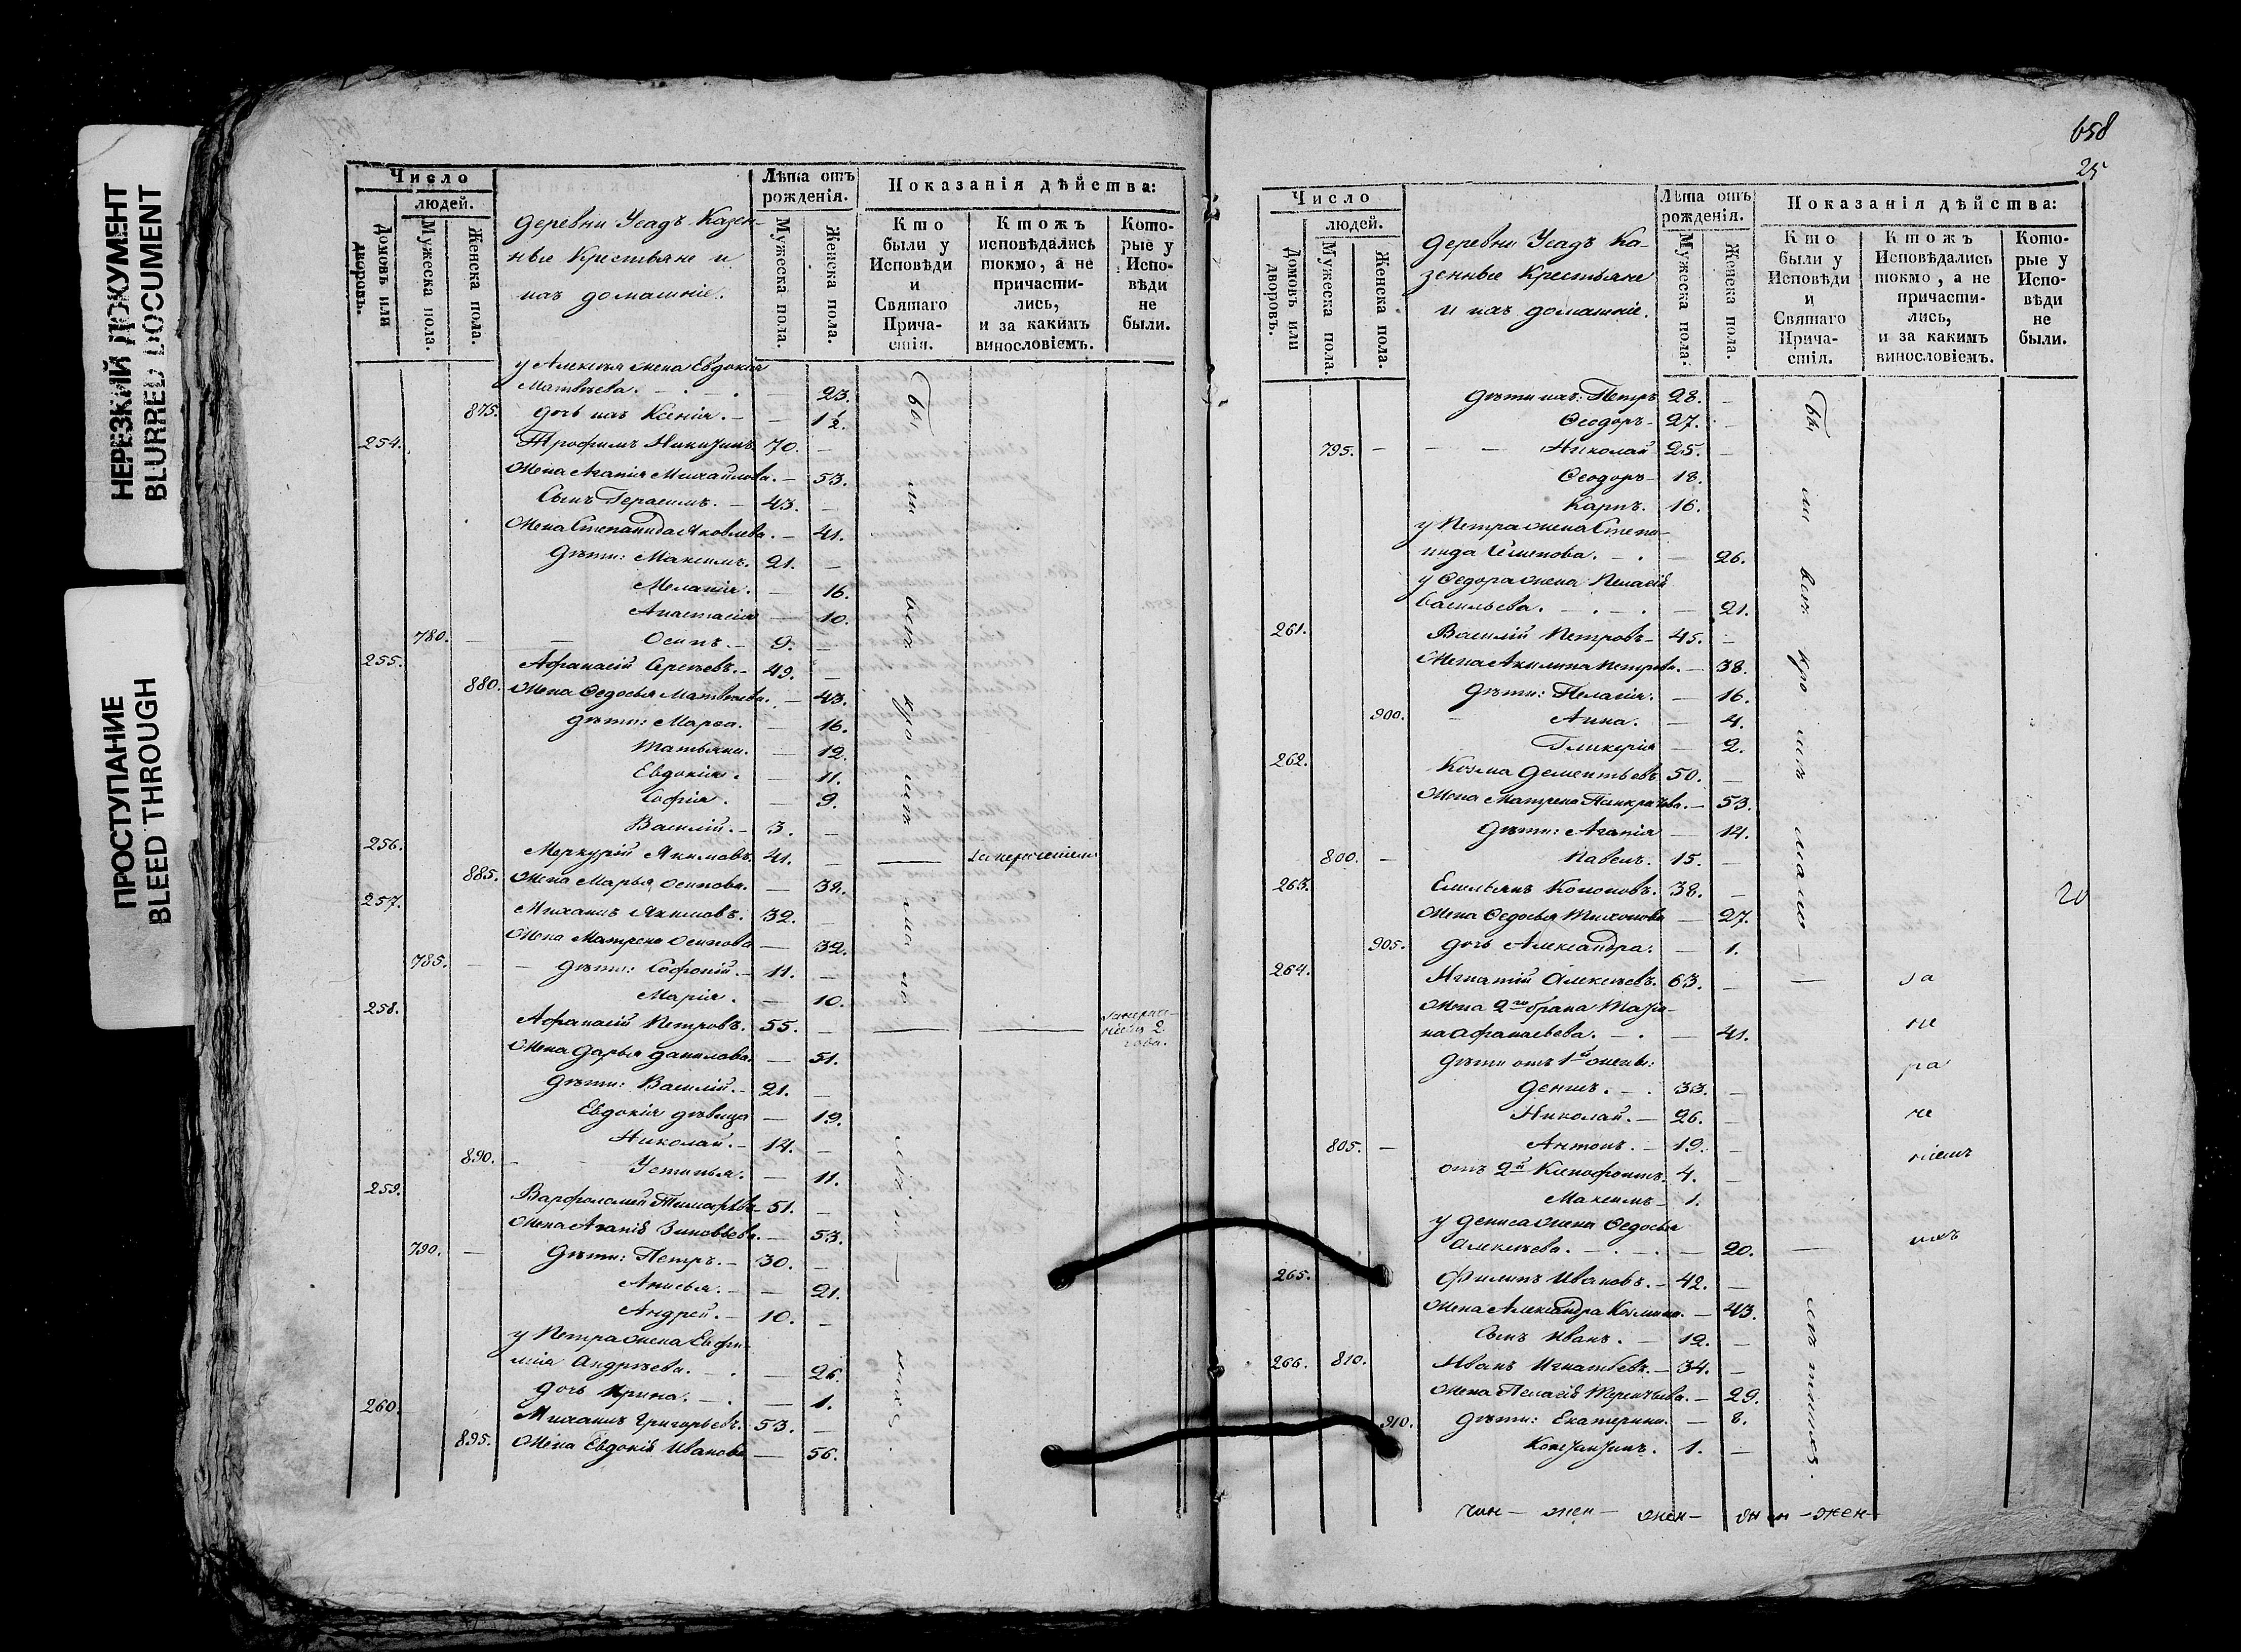 НЕРЕЗКИЙ ДОКУМЕНТ
BLURRED DOCUMENT
ПРОСТУПАНИЕ
BLEED THROUGH
Число
людей.
Домовъ или дворовъ.
Мужеска пола.
Женска пола.
деревни Усадъ Казен-
ные Крестьяне и
ихъ домашніе.
Лѣта отъ рожденія.
Мужеска пола.
Женска пола.
Показанія дѣйства:
Кто были у Исповѣди и Святаго Причастія.
Ктожъ исповѣдались токмо, а не причастились, и за какимъ винословіемъ.
Которые у Исповѣди не были.
у Алексѣя жена Евдокія
Матвѣева. — 23.
875. дочь ихъ Ксенія. — 1½.
254. Трофимъ Никитинъ. 70. —
Жена Агапія Михайлова. — 53.
Сынъ Герасимъ. — 43. —
Жена Степанида Яковлева. — 41.
Дѣти: Максимъ. 21. —
Меланія. — 16.
Анастасія — 10.
780. — — Осипъ. — 9. —
255. Афанасій Сергѣевъ. — 49. —
880. Жена Федосья Матвѣева. — 43.
дѣти: Марѳа. — 16.
Татьяна. — 12.
Евдокія. — 11.
Софія. — 9.
Василій. — 3. —
256. Меркурій Якимовъ. 41. — —
885. Жена Марья Осипова. — 38.
257. Михаилъ Якимовъ. 32. —
Жена Матрена Осипова — 32.
785. — — дѣти: Софроній. — 11. —
Марія. — 10.
258. Афанасій Петровъ. 55. — — —
2 года.
Жена Дарья Данилова. — 51.
Дѣти: Василій. — 21. —
Евдокія дѣвица — 19.
Николай. — 14. —
890. — — Устинья. — 11.
259. Варфоломей 51. —
Жена Агапія Зиновьева. — 53.
790. — Дѣти: Петръ. — 30. —
Анисья. — — 21.
Андрей. — 10. —
у Петра жена Евфи-
мія Андреева. — 26.
дочь Ирина. — 1.
260. Михаилъ Григорьевъ. 53. —
895. Жена Евдокія Иванова — 56.
658
25
Число
людей.
Домовъ или дворовъ.
Мужеска пола.
Женска пола.
деревни Усадъ Ка-
зенные Крестьяне
и ихъ домашніе.
Лѣта отъ рожденія.
Мужеска пола.
Женска пола.
Показанія дѣйства:
Кто были у Исповѣди и Святаго Причастія.
Ктожъ Исповѣдались токмо, а не причастились, и за какимъ винословіемъ.
Которые у Исповѣди не были.
дѣти ихъ: Петръ 28. —
Ѳеодоръ — 27. —
795. — — — Николай 25. —
Ѳеодоръ — 18.
Карпъ. 16.
у Петра жена Степа-
нида Семенова. — 26.
у Ѳедора жена Пелагія
Васильева. — 21.
261. Василій Петровъ — 45. —
Жена Акилина Петрова. — 38.
дѣти: Пелагія. — 16.
900. — Анна. — 4.
Гликерія — 2.
262. Козма Дементьевъ 50. —
Жена Матрена Панкратова. — 53.
дѣти: Агапія — 14.
800. — Павелъ. 15. —
263. Емельянъ Кононовъ. 38. —
Жена Федосья Тихонова — 27.
20
905. дочь Александра. — 1.
264. Игнатій Алексѣевъ. 63. — — за
Жена 2го брака Татья-
на Афанасьева. — 41.
не
Дѣти отъ 1й жены:
ра
Денисъ. — 33. —
Николай. — 26. —
че
805. — Антонъ. — 19. —
ніемъ
отъ 2й Ксенофонтъ. 4. —
Максимъ — 1.
у Дениса жена Федосья
Алексѣева. — 20. —
ихъ
265. Филипъ Ивановъ. — 42. —
Жена Александра Козмина. — 43.
Сынъ Иванъ. — 12. —
266. 810. Иванъ Игнатьевъ. — 34. —
Жена Пелагія Терентьева. — 29.
910. дѣти: Екатерина. — 8.
Константинъ. 1. —